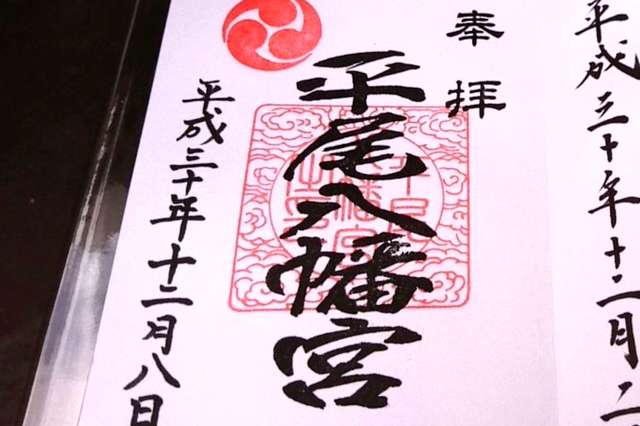 平成三十年十二月二
奉拝
平尾八幡宮
平成三十年十二月八日